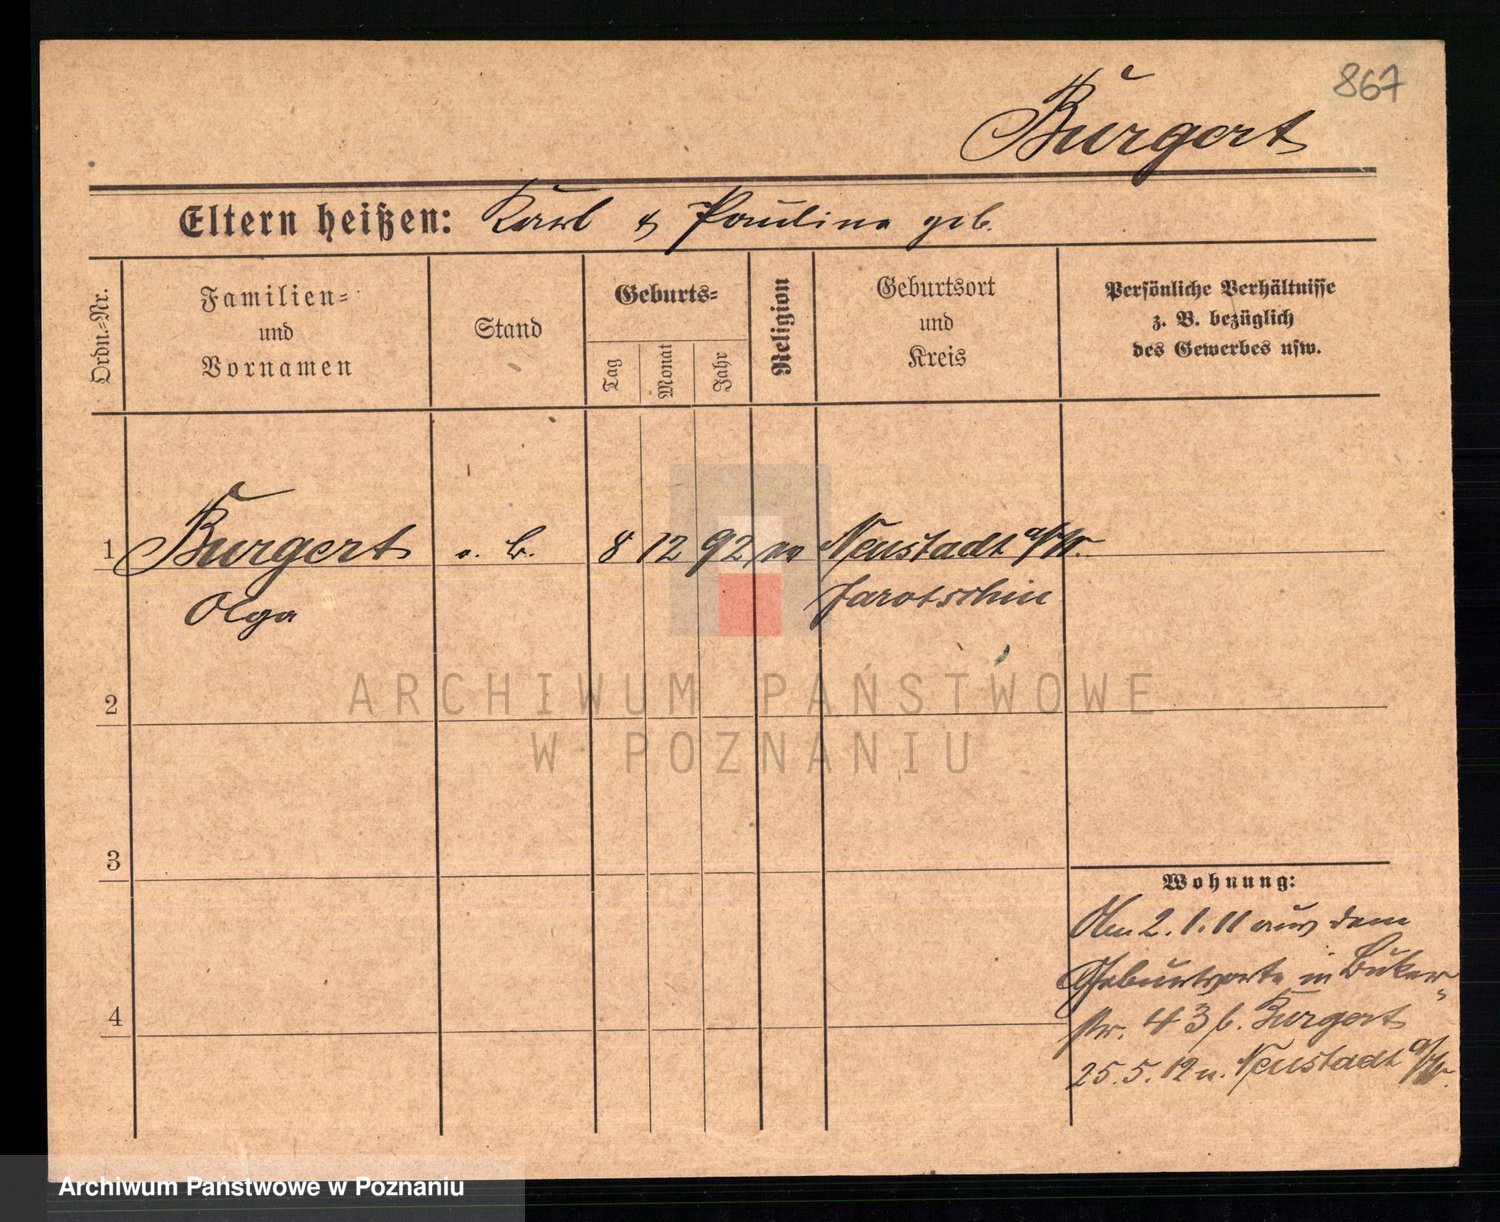 867
Burgert
Eltern heißen: Karl & Paulina geb.
Ordn.-Nr.
Familien-
und
Vornamen
Stand
Geburts-
Tag
Monat
Jahr
Religion
Geburtsort
und
Kreis
Persönliche Verhältnisse
z. B. bezüglich
des Gewerbes usw.
1 Burgert o. B. 8 12 92 Neustadt a/W.
Olga Jarotschin
2
ARCHIWUM PAŃSTWOWE
W POZNANIU
3
Wohnung:
Am 2. 1. 11 aus dem
Geburtsorte in Buker-
4
str. 43 b. Burgert
25. 5. 12 n. Neustadt a/W.
Archiwum Państwowe w Poznaniu